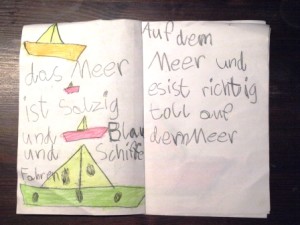 das Meer
ist Salzig
und Blau
und Schiffe
Fahren
Auf dem
Meer und
es ist richtig
toll auf
dem Meer